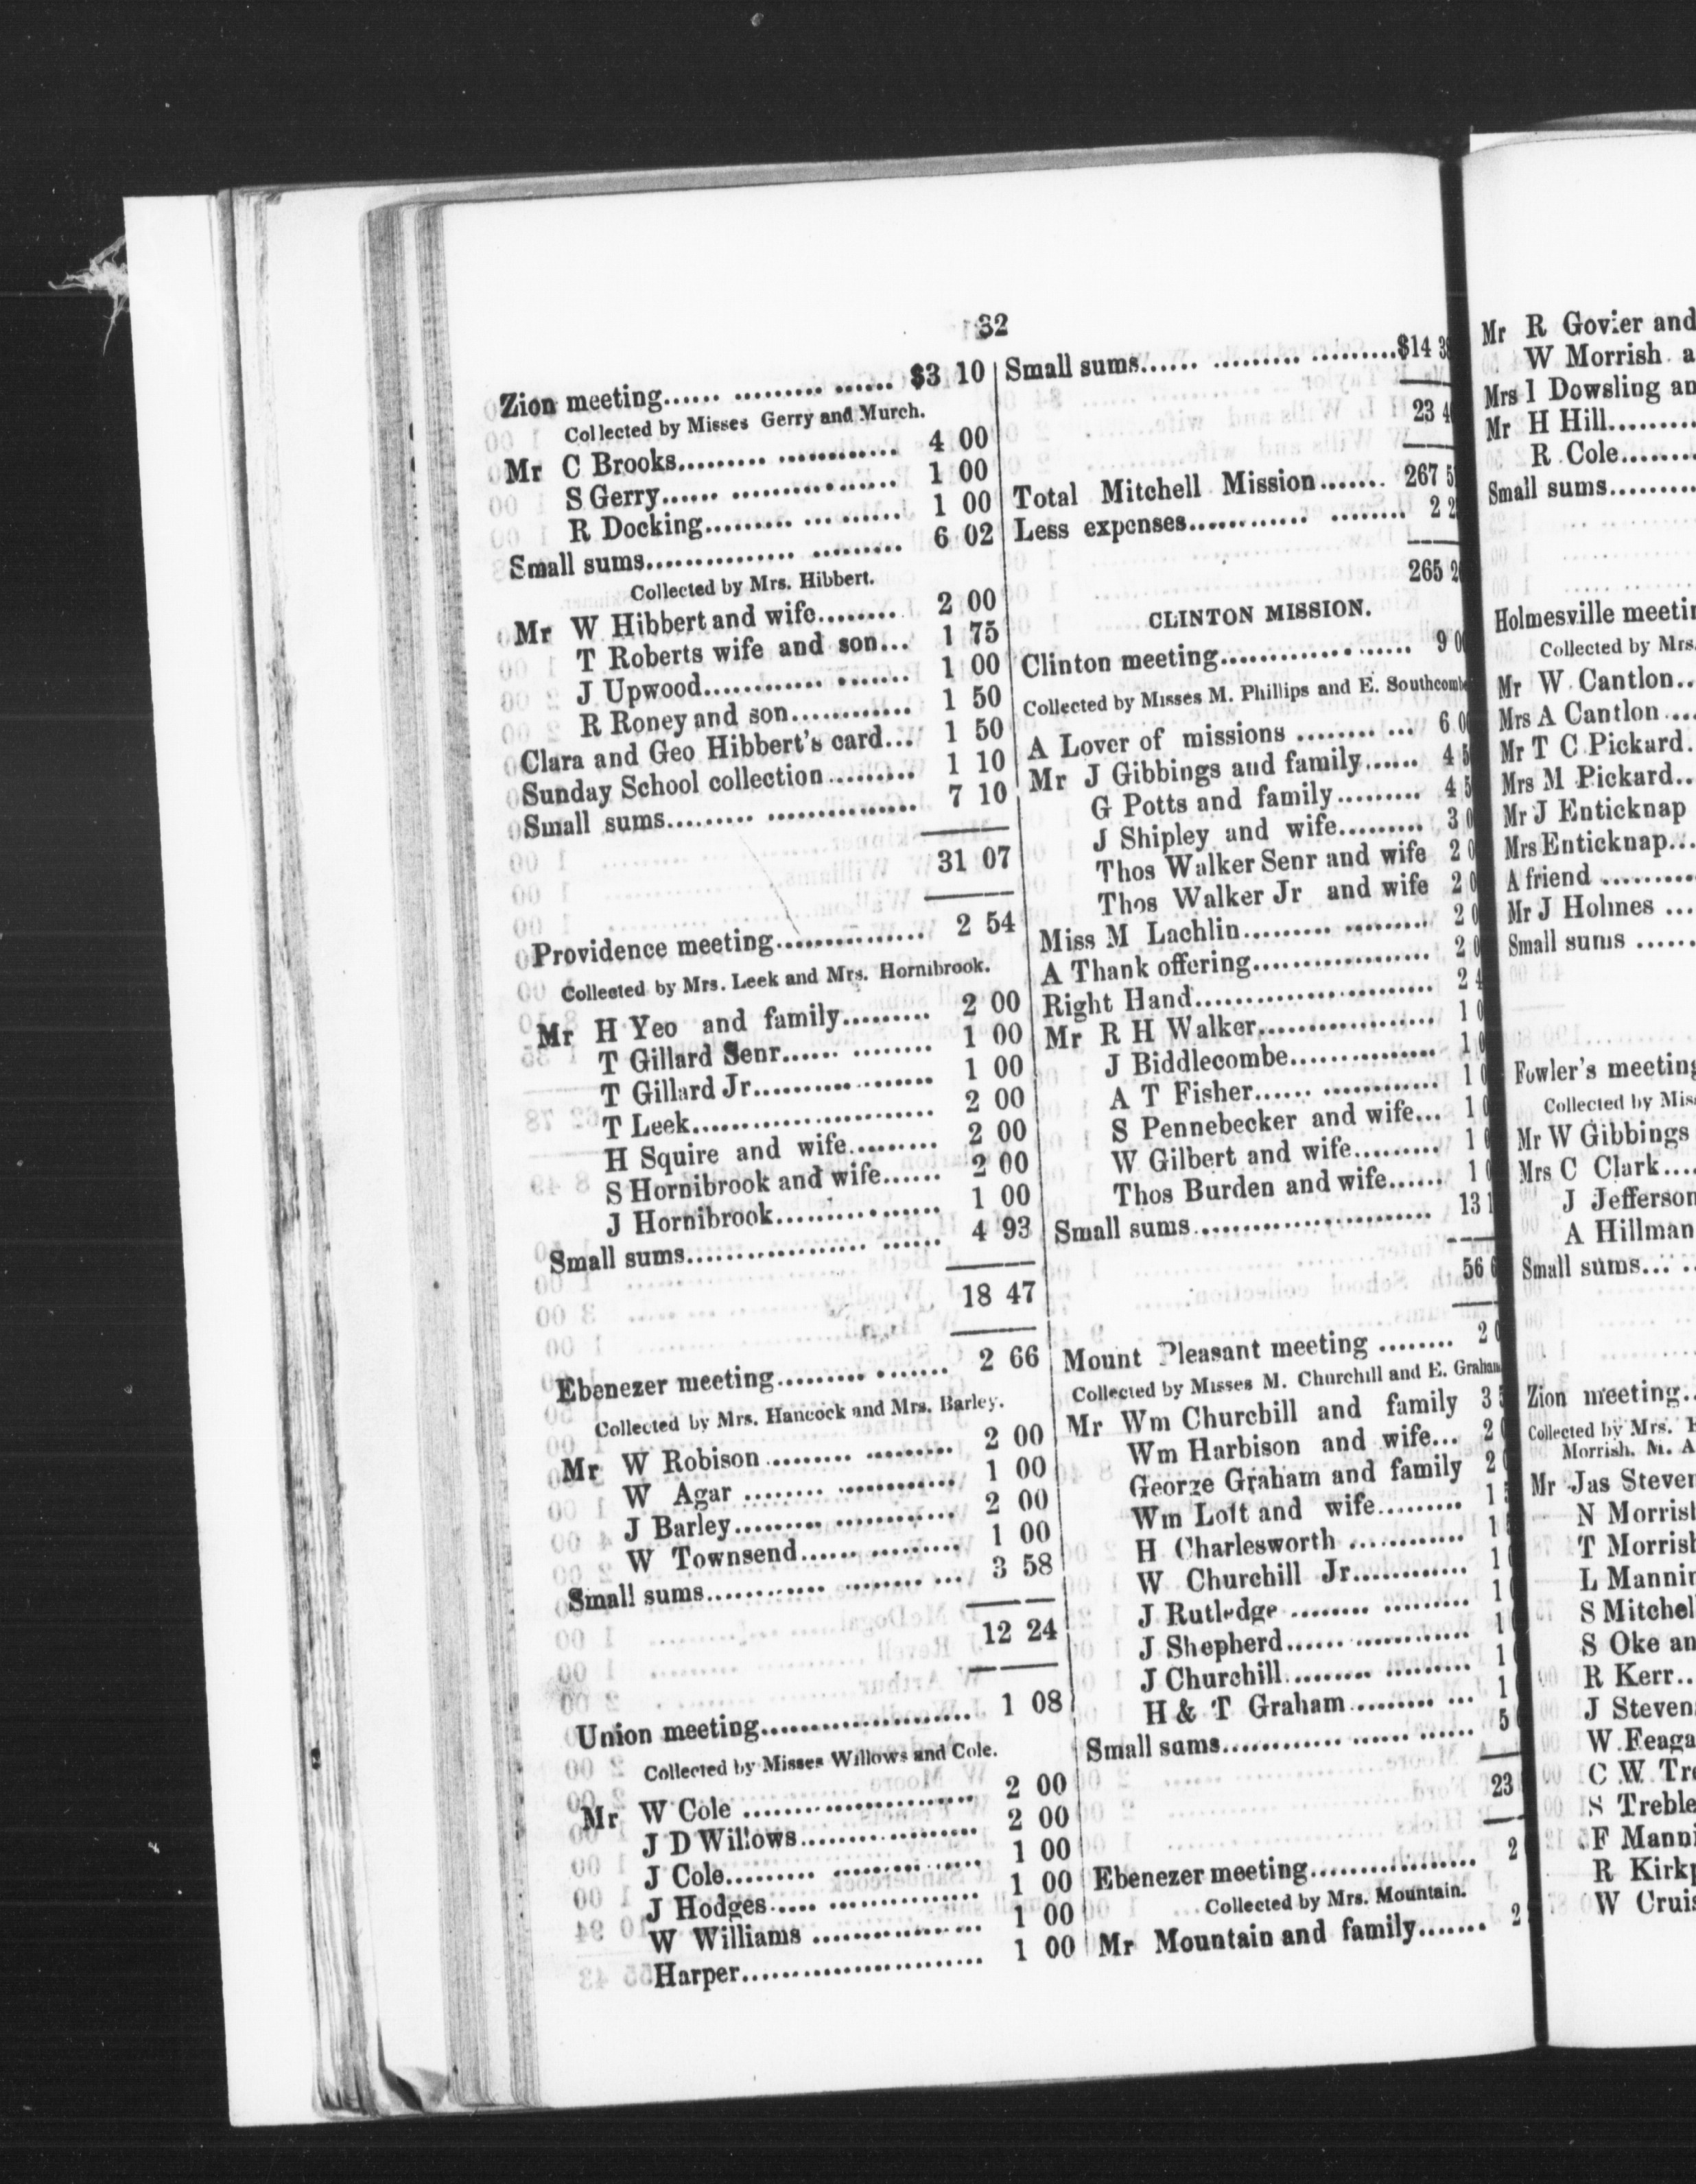 32
Zion meeting...... ......... ...... $3 10
Collected by Misses Gerry and Murch.
Mr C Brooks......... ............ 4 00
S Gerry...... ................ 1 00
R Docking......... .......... 1 00
Small sums............... ......... 6 02
Collected by Mrs. Hibbert.
Mr W Hibbert and wife........ 2 00
T Roberts wife and son... 1 75
J Upwood............ ....... 1 00
R Roney and son............ 1 50
Clara and Geo Hibbert's card... 1 50
Sunday School collection......... 1 10
Small sums......... ............... 7 10
31 07
Providence meeting............... 2 54
Collected by Mrs. Leek and Mrs. Hornibrook.
Mr H Yeo and family......... 2 00
T Gillard Senr...... ........ 1 00
T Gillard Jr.................. 1 00
T Leek........................ 2 00
H Squire and wife......... 2 00
S Hornibrook and wife...... 2 00
J Hornibrook................ 1 00
Small sums.................. ...... 4 93
18 47
Ebenezer meeting......... ....... 2 66
Collected by Mrs. Hancock and Mrs. Barley.
Mr W Robison......... ......... 2 00
W Agar ........ ............ 1 00
J Barley......... ............ 2 00
W Townsend...... ......... 1 00
Small sums............ ........ ... 3 58
12 24
Union meeting..................... 1 08
Collected by Misses Willows and Cole.
Mr W Cole ....................... 2 00
J D Willows.................. 2 00
J Cole......... ............... 1 00
J Hodges..... ............... 1 00
W Williams ................. 1 00
Harper........................ 1 00
Small sums...... ......... .........$14 3
23 4
Total Mitchell Mission....... 267 5
Less expenses............ ........ 2 2
265 2
CLINTON MISSION.
Clinton meeting................... 9 0
Collected by Misses M. Phillips and E. Southcombe
A Lover of missions ........ ... 6 0
Mr J Gibbings and family...... 4 5
G Potts and family......... 4 5
J Shipley and wife......... 3 0
Thos Walker Senr and wife 2 0
Thos Walker Jr and wife 2 0
Miss M Lachlin......... ......... 2 0
A Thank offering.................. 2 0
Right Hand........................ 2 4
Mr R H Walker.................. 1 0
J Biddlecombe............... 1 0
A T Fisher...... ............ 1 0
S Pennebecker and wife... 1 0
W Gilbert and wife......... 1 0
Thos Burden and wife...... 1 0
Small sums........................ 13 1
56 6
Mount Pleasant meeting ........ 2 0
Collected by Misses M. Churchill and E. Graham
Mr Wm Churchill and family 3 5
Wm Harbison and wife... 2 0
George Graham and family 2
Wm Lott and wife......... 1 5
H Charlesworth ............ 1
W Churchill Jr............ 1
J Rutledge ........ ......... 1
J Shepherd...... ............ 1
J Churchill......... ......... 1
H & T Graham......... ... 1
Small sums............ ...... ...... 5
23
Ebenezer meeting................. 2
Collected by Mrs. Mountain.
Mr Mountain and family....... 2
Mr R Govier and
W Morrish a
Mrs I Dowsling an
Mr H Hill.........
R Cole.......
Small sums.........
Holmesville meetin
Collected by Mrs.
Mr W Cantlon..
Mrs A Cantlon ...
Mr T C Pickard.
Mrs M Pickard..
Mr J Enticknap
Mrs Enticknap...
A friend .........
Mr J Holmes ...
Small sums ......
Fowler's meeting
Collected by Mis
Mr W Gibbings
Mrs C Clark....
J Jefferson
A Hillman
Small sums... ..
Zion meeting..
Collected by Mrs.
Morrish, M. A
Mr Jas Steven
N Morrish
T Morrish
L Mannin
S Mitchel
S Oke an
R Kerr..
J Steven
W Feaga
C W Tre
S Treble
F Manni
R Kirkp
W Cruis